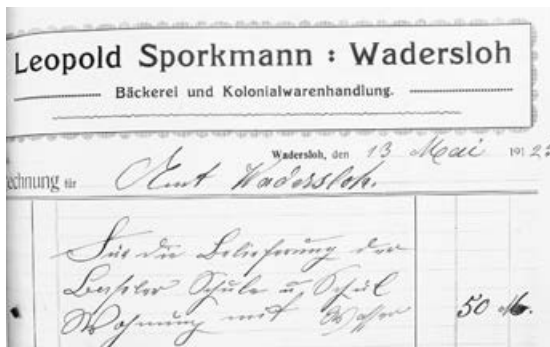 Leopold Sporkmann : Wadersloh
Bäckerei und Kolonialwarenhandlung.
Wadersloh, den 13 Mai 1922
echnung für Amt Wadersloh.
Für die Belieferung der
Schule u. Schul
Wohnung mit Wasser 50 M.